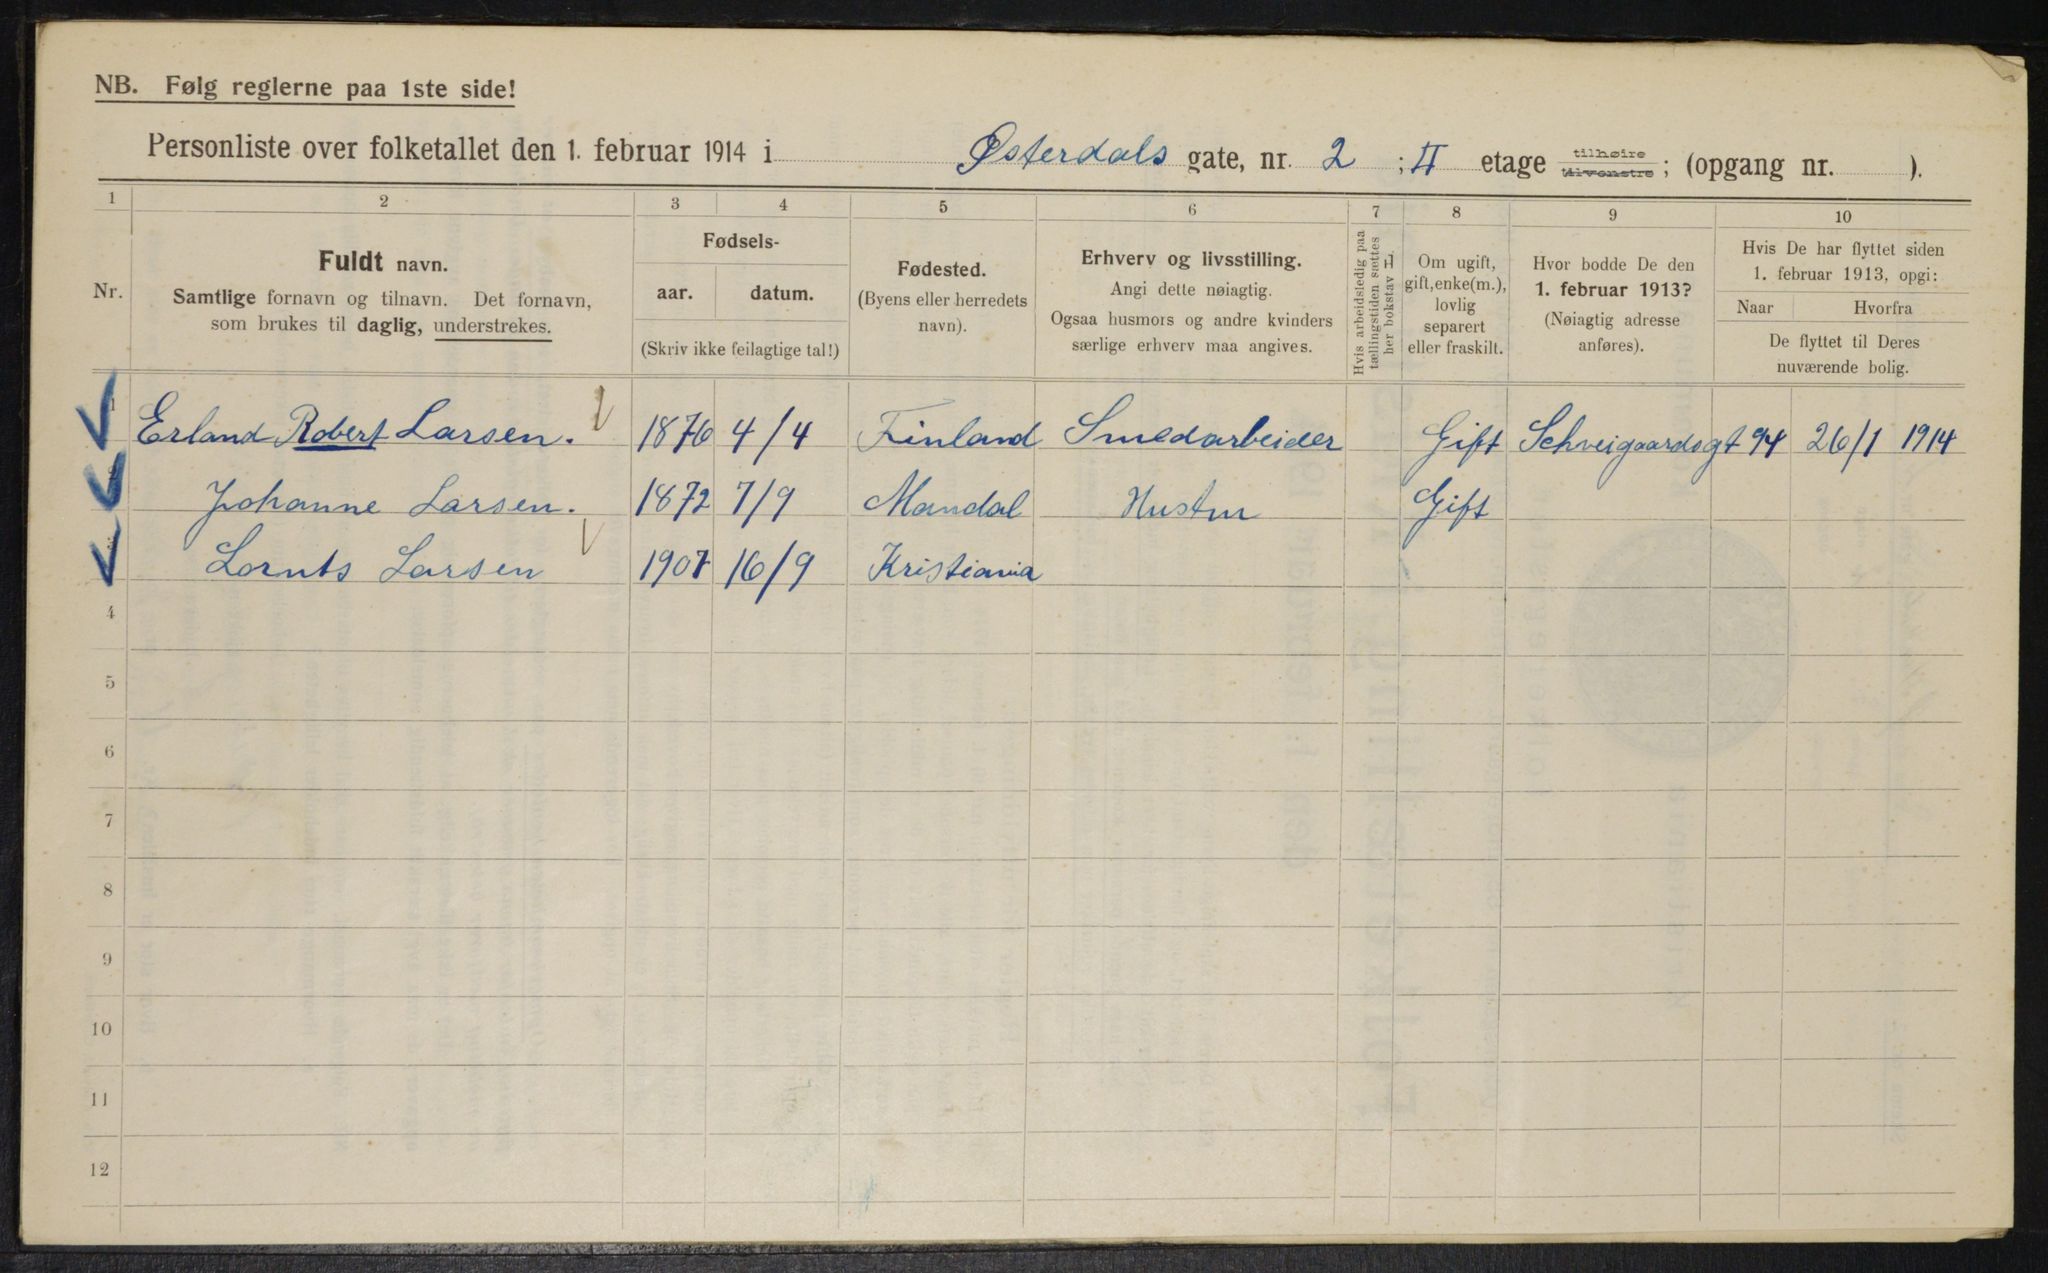 NB. Følg reglerne paa 1ste side!
Personliste over folketallet den 1. februar 1914 i Østerdals gate, nr. 2 ; II etage tilhøire tilvenstre ; (opgang nr. ).
1 2 3 4 5 6 7 8 9 10
Nr.
Fuldt navn.
Samtlige fornavn og tilnavn. Det fornavn,
som brukes til daglig, understrekes.
Fødsels-
aar. datum.
(Skriv ikke feilagtige tal!)
Fødested.
(Byens eller herredets
navn).
Erhverv og livsstilling.
Angi dette nøiagtig.
Ogsaa husmors og andre kvinders
særlige erhverv maa angives.
Hvis arbeidsledig paa
tællingstiden sættes
her bokstav L
Om ugift,
gift, enke(m.),
lovlig
separert
eller fraskilt.
Hvor bodde De den
1. februar 1913?
(Nøiagtig adresse
anføres).
Hvis De har flyttet siden
1. februar 1913, opgi:
Naar Hvorfra
De flyttet til Deres
nuværende bolig.
1 Erland Robert Larsen. 1876 4/4 Finland Smedarbeider Gift Schveigaardsgt 94 26/1 1914
2 Johanne Larsen. 1872 7/9 Mandal Hustru Gift
3 Lornts Larsen 1907 16/9 Kristiania
4
5
6
7
8
9
10
11
12